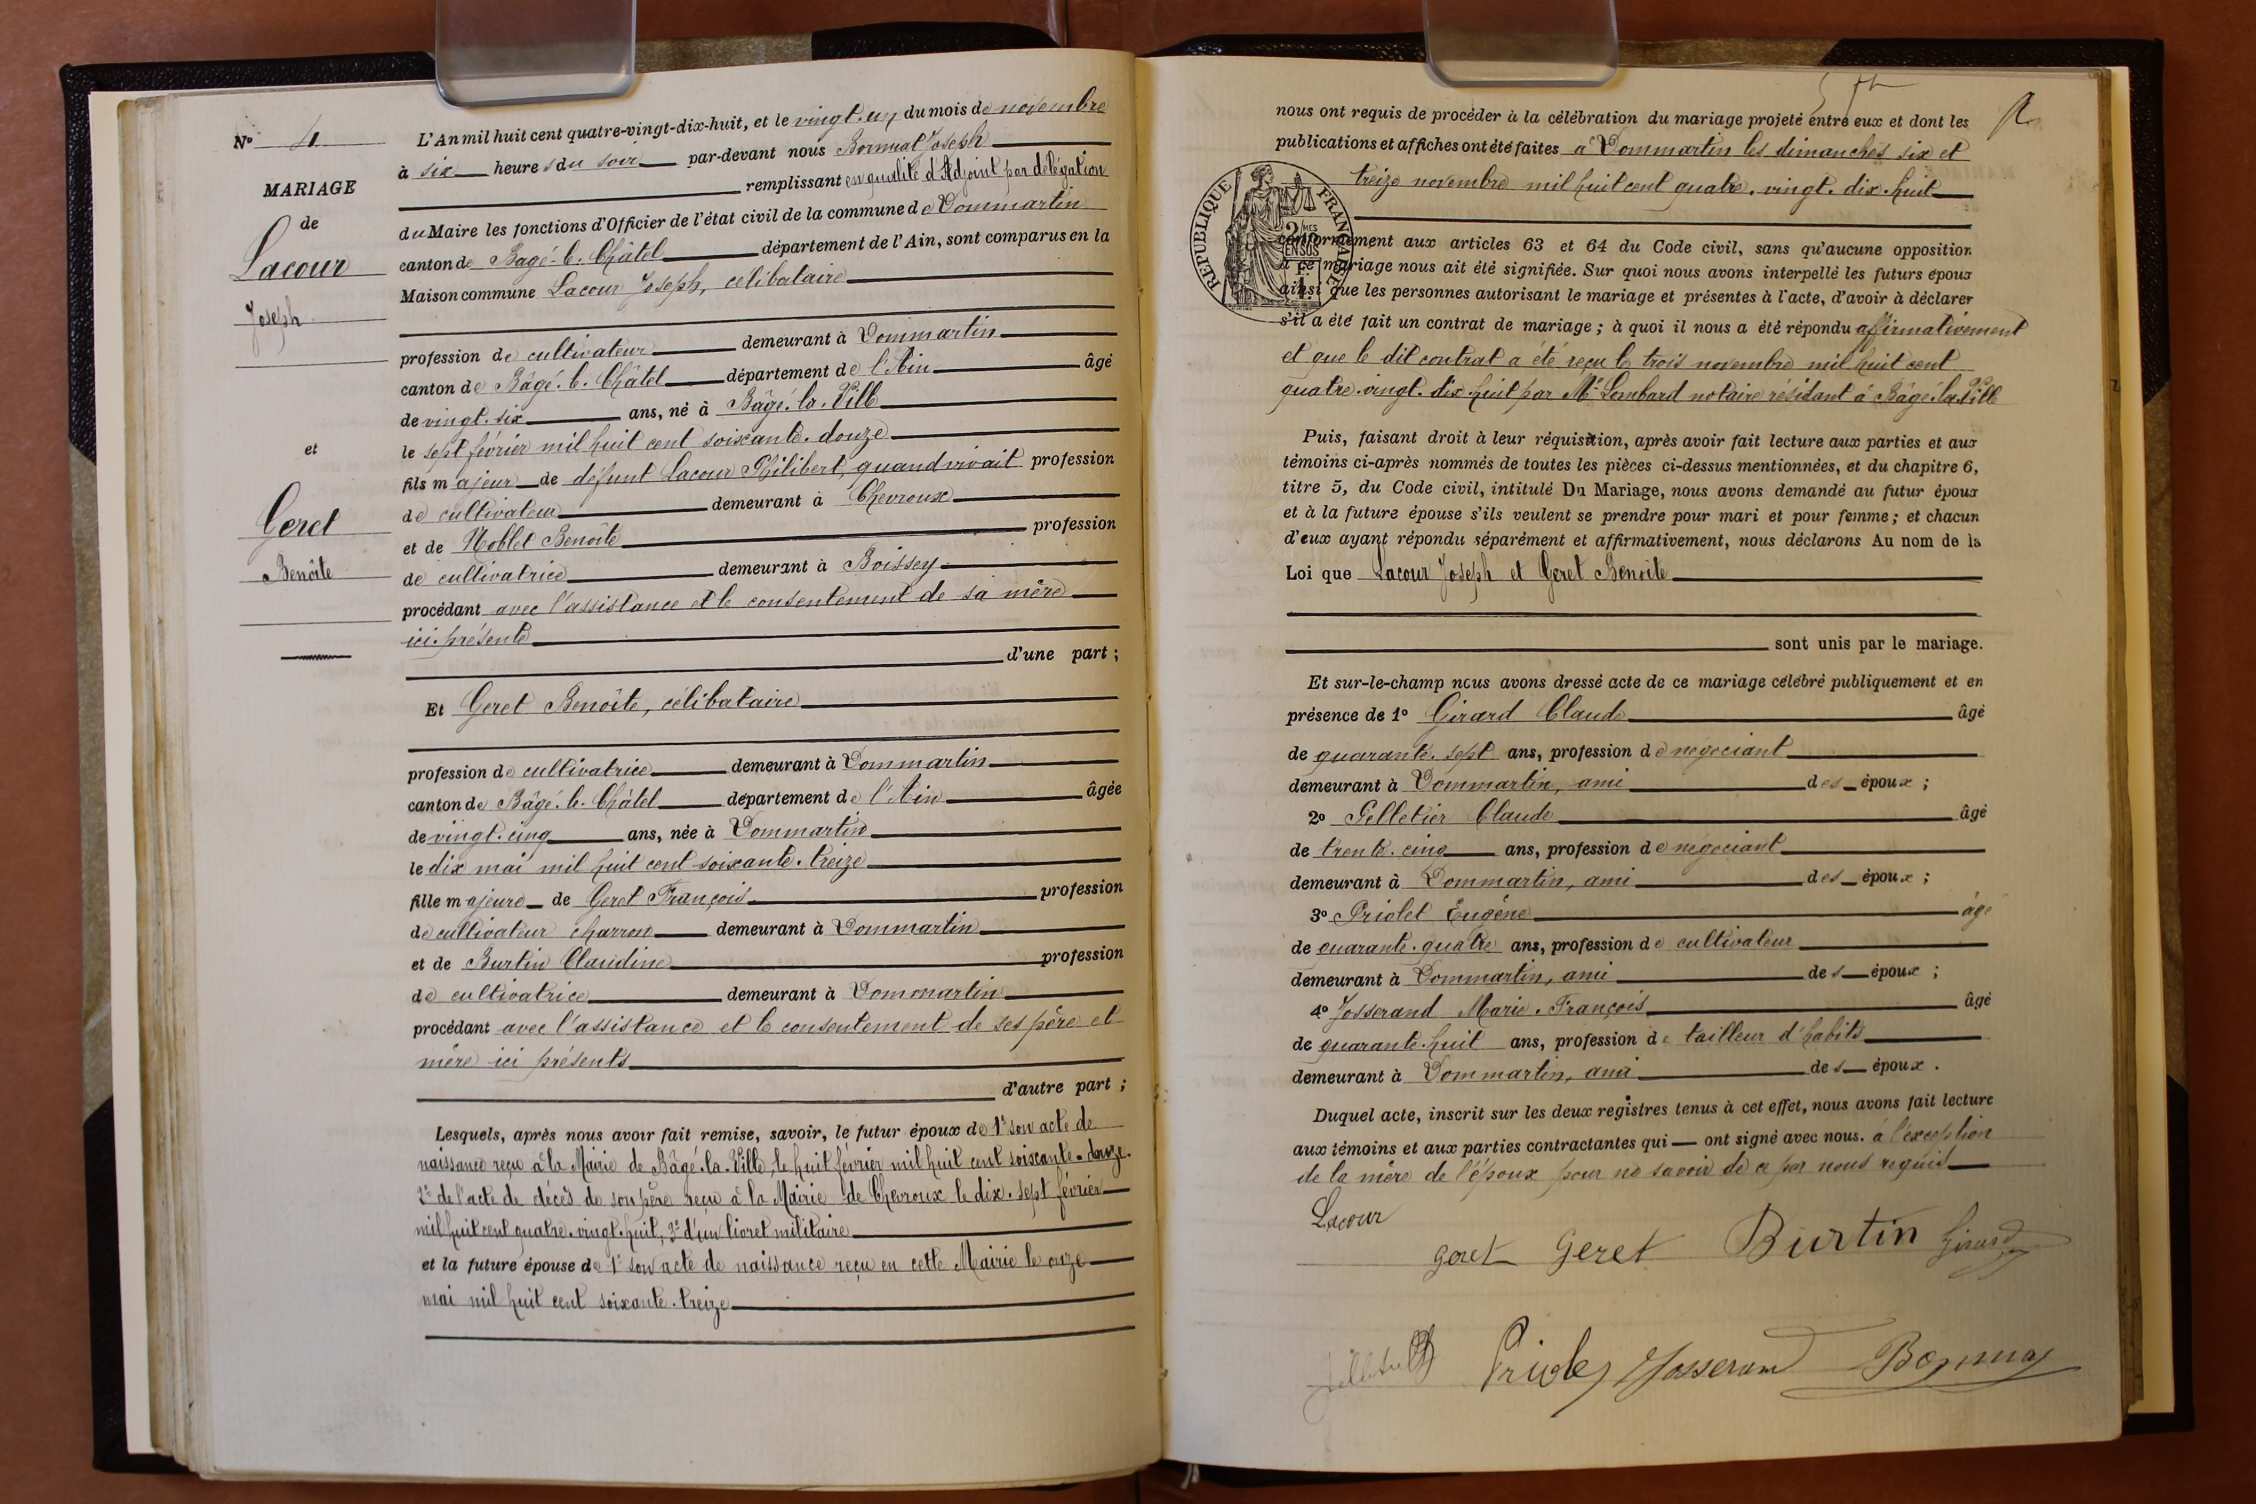 Nº 4
MARIAGE
de
Lacour
Joseph
et
Geret
Benoîte
L'An mil huit cent quatre-vingt-dix-huit, et le vingt-un du mois de novembre
à six heures du soir par-devant nous Bonnat Joseph
remplissant en qualité d'Adjoint par délégation
du Maire les fonctions d'Officier de l'état civil de la commune de Dommartin
canton de Bagé-le-Châtel département de l'Ain, sont comparus en la
Maison commune Lacour Joseph, célibataire
profession de cultivateur demeurant à Dommartin
canton de Bâgé-le-Châtel département de l'Ain âgé
de vingt-six ans, né à Bâgé-la-Ville
le sept février mil huit cent soixante-douze
fils majeur de défunt Lacour Philibert, quand vivait profession
de cultivateur demeurant à Chevroux
et de Noblet Benoîte profession
de cultivatrice demeurant à Boissey
procédant avec l'assistance et le consentement de sa mère
ici présente
d'une part ;
Et Geret Benoîte, célibataire
profession de cultivatrice demeurant à Dommartin
canton de Bâgé-le-Châtel département de l'Ain âgée
de vingt-cinq ans, née à Dommartin
le dix mai mil huit cent soixante-treize
fille majeure de Geret François profession
de cultivateur charron demeurant à Dommartin
et de Burtin Claudine profession
de cultivatrice demeurant à Dommartin
procédant avec l'assistance et le consentement de ses père et
mère ici présents
d'autre part ;
Lesquels, après nous avoir fait remise, savoir, le futur époux de 1º son acte de
naissance reçu à la Mairie de Bâgé-la-Ville, le huit février mil huit cent soixante-douze.
2º de l'acte de décès de son père reçu à la Mairie de Chevroux le dix-sept février
mil huit cent quatre-vingt-huit, 3º d'un livret militaire
et la future épouse de 1º son acte de naissance reçu en cette Mairie le onze
mai mil huit cent soixante-treize
nous ont requis de procéder à la célébration du mariage projeté entre eux et dont les
publications et affiches ont été faites à Dommartin les dimanches six et
treize novembre mil huit cent quatre-vingt-dix-huit
RÉPUBLIQUE FRANÇAISE
conformément aux articles 63 et 64 du Code civil, sans qu'aucune opposition
à ce mariage nous ait été signifiée. Sur quoi nous avons interpellé les futurs époux
ainsi que les personnes autorisant le mariage et présentes à l'acte, d'avoir à déclarer
s'il a été fait un contrat de mariage ; à quoi il nous a été répondu affirmativement
et que le dit contrat a été reçu le trois novembre mil huit cent
quatre-vingt-dix-huit par Me Lombard notaire résidant à Bâgé-la-Ville
Puis, faisant droit à leur réquisition, après avoir fait lecture aux parties et aux
témoins ci-après nommés de toutes les pièces ci-dessus mentionnées, et du chapitre 6,
titre 5, du Code civil, intitulé Du Mariage, nous avons demandé au futur époux
et à la future épouse s'ils veulent se prendre pour mari et pour femme ; et chacun
d'eux ayant répondu séparément et affirmativement, nous déclarons Au nom de la
Loi que Lacour Joseph et Geret Benoîte
sont unis par le mariage.
Et sur-le-champ nous avons dressé acte de ce mariage célébré publiquement et en
présence de 1º Girard Claude âgé
de quarante-sept ans, profession de négociant
demeurant à Dommartin, ami des époux ;
2º Pelletier Claude âgé
de trente-cinq ans, profession de négociant
demeurant à Dommartin, ami des époux ;
3º Priolet Eugène âgé
de quarante-quatre ans, profession de cultivateur
demeurant à Dommartin, ami des époux ;
4º Josserand Marie-François âgé
de quarante-huit ans, profession de tailleur d'habits
demeurant à Dommartin, ami des époux.
Duquel acte, inscrit sur les deux registres tenus à cet effet, nous avons fait lecture
aux témoins et aux parties contractantes qui ont signé avec nous. à l'exception
de la mère de l'époux pour ne savoir de ce par nous requis
Lacour
Geret Geret Burtin Girard
Priolet Josserand